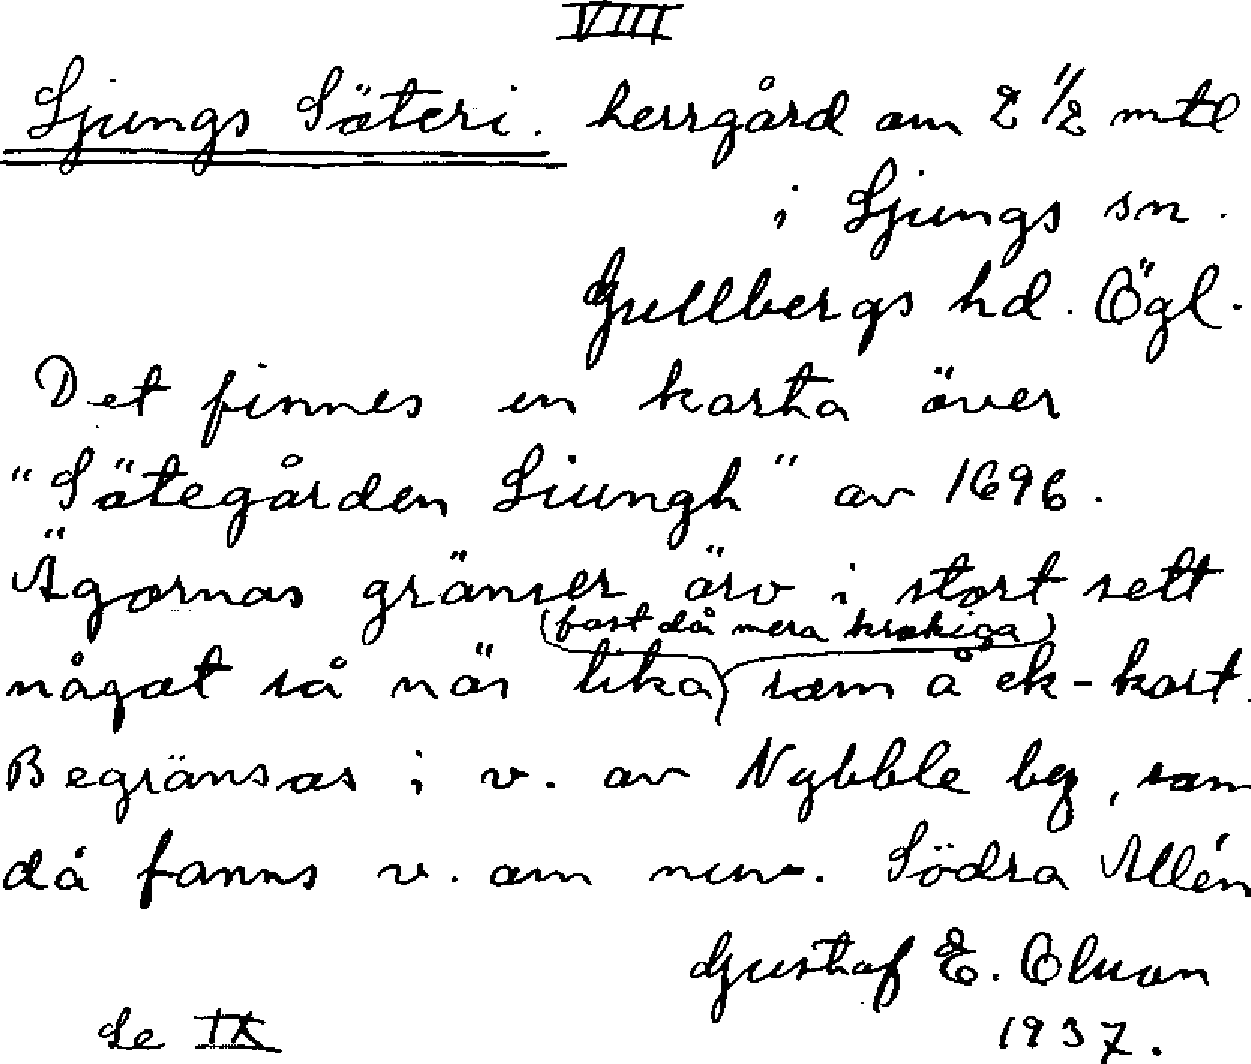 VIII
Ljungs Säteri. herrgård om 2 1/2 mtl
i Ljungs sn.
Gullbergs hd. Ögl.
Det finnes en karta över
"Sätegården Liungh" av 1696.
Ägornas gränser äro i stort sett
(fast då mera krokiga)
något så när lika som å ek-kart.
Begränsas i v. av Nybble by, som
då fanns v. om nuv. Södra Allén
Gustaf E. Olsson
1937.
Se IX